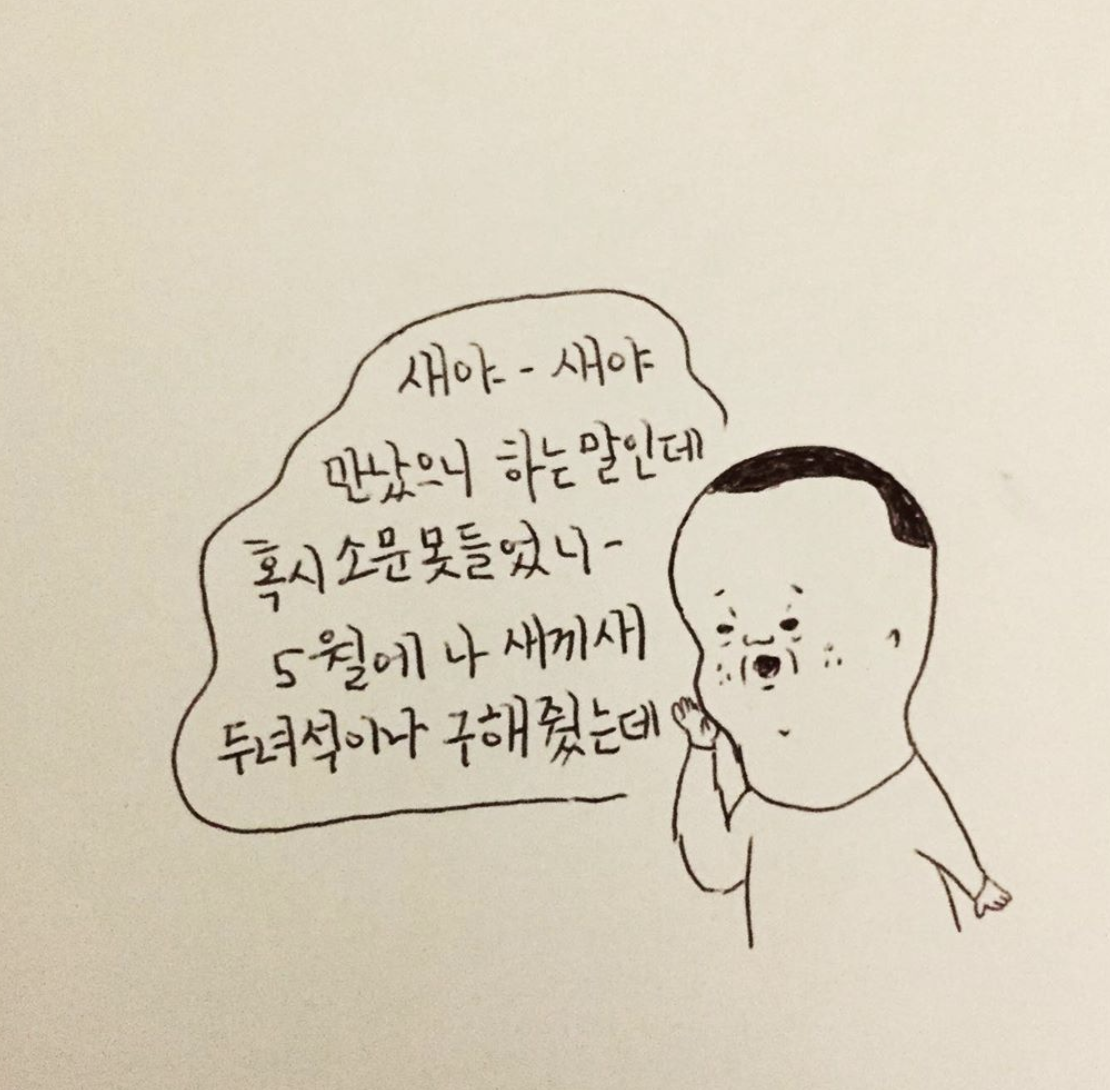 새야- 새야
만났으니 하는말인데
혹시 소문못들었니-
5월에 나 새끼새
두녀석이나 구해줬는데